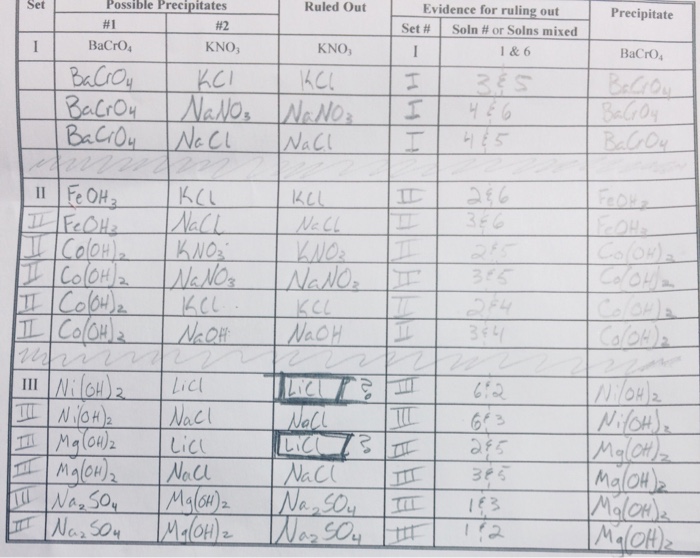 Set Possible Precipitates Ruled Out Evidence for ruling out Precipitate
#1 #2 Set # Soln # or Solns mixed
I BaCrO₄ KNO₃ KNO₃ I 1 & 6 BaCrO₄
BaCrO₄ KCl KCl I 3&5 BaCrO₄
BaCrO₄ NaNO₃ NaNO₃ I 4&6 BaCrO₄
BaCrO₄ NaCl NaCl I 4&5 BaCrO₄
II FeOH₃ KCl KCl II 2&6 FeOH₃
II FeOH₃ NaCl NaCl II 3&6 FeOH₃
II Co(OH)₂ KNO₃ KNO₃ II 2&5 Co(OH)₂
II Co(OH)₂ NaNO₃ NaNO₃ II 3&5 Co(OH)₂
II Co(OH)₂ KCl KCl II 2&4 Co(OH)₂
II Co(OH)₂ NaOH NaOH II 3&4 Co(OH)₂
III Ni(OH)₂ LiCl LiCl ? III 6&2 Ni(OH)₂
III Ni(OH)₂ NaCl NaCl III 6&3 Ni(OH)₂
III Mg(OH)₂ LiCl LiCl ? III 2&5 Mg(OH)₂
III Mg(OH)₂ NaCl NaCl III 3&5 Mg(OH)₂
III Na₂SO₄ Mg(OH)₂ Na₂SO₄ III 1&3 Mg(OH)₂
III Na₂SO₄ Mg(OH)₂ Na₂SO₄ III 1&2 Mg(OH)₂